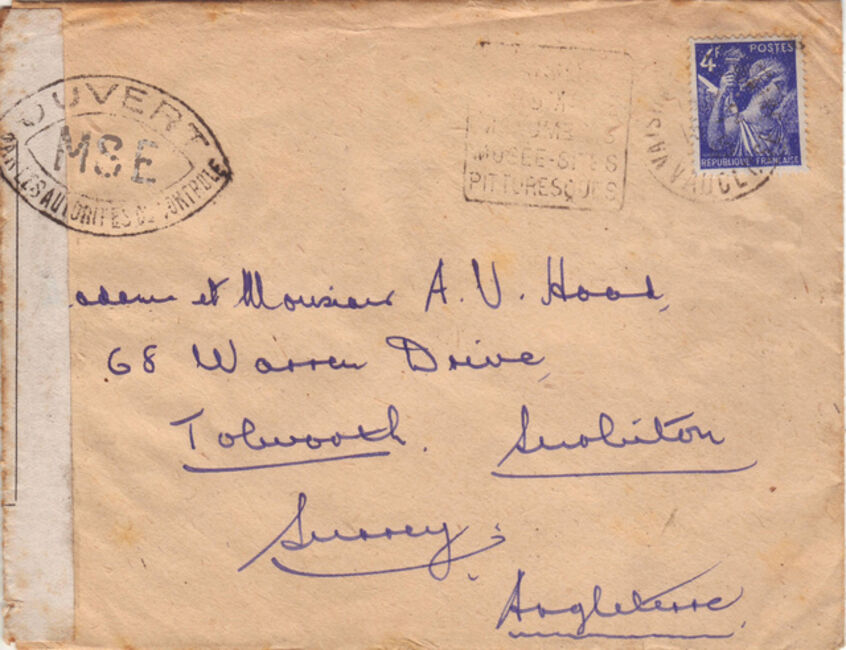 OUVERT
MSE
PAR LES AUTORITES DE CONTROLE
MUSEE-SITES
PITTORESQUES
4F POSTES
REPUBLIQUE FRANCAISE
VAUCLUSE
adame et Monsieur A. V. Hood,
68 Warren Drive,
Tolworth. Surbiton
Surrey;
Angleterre.